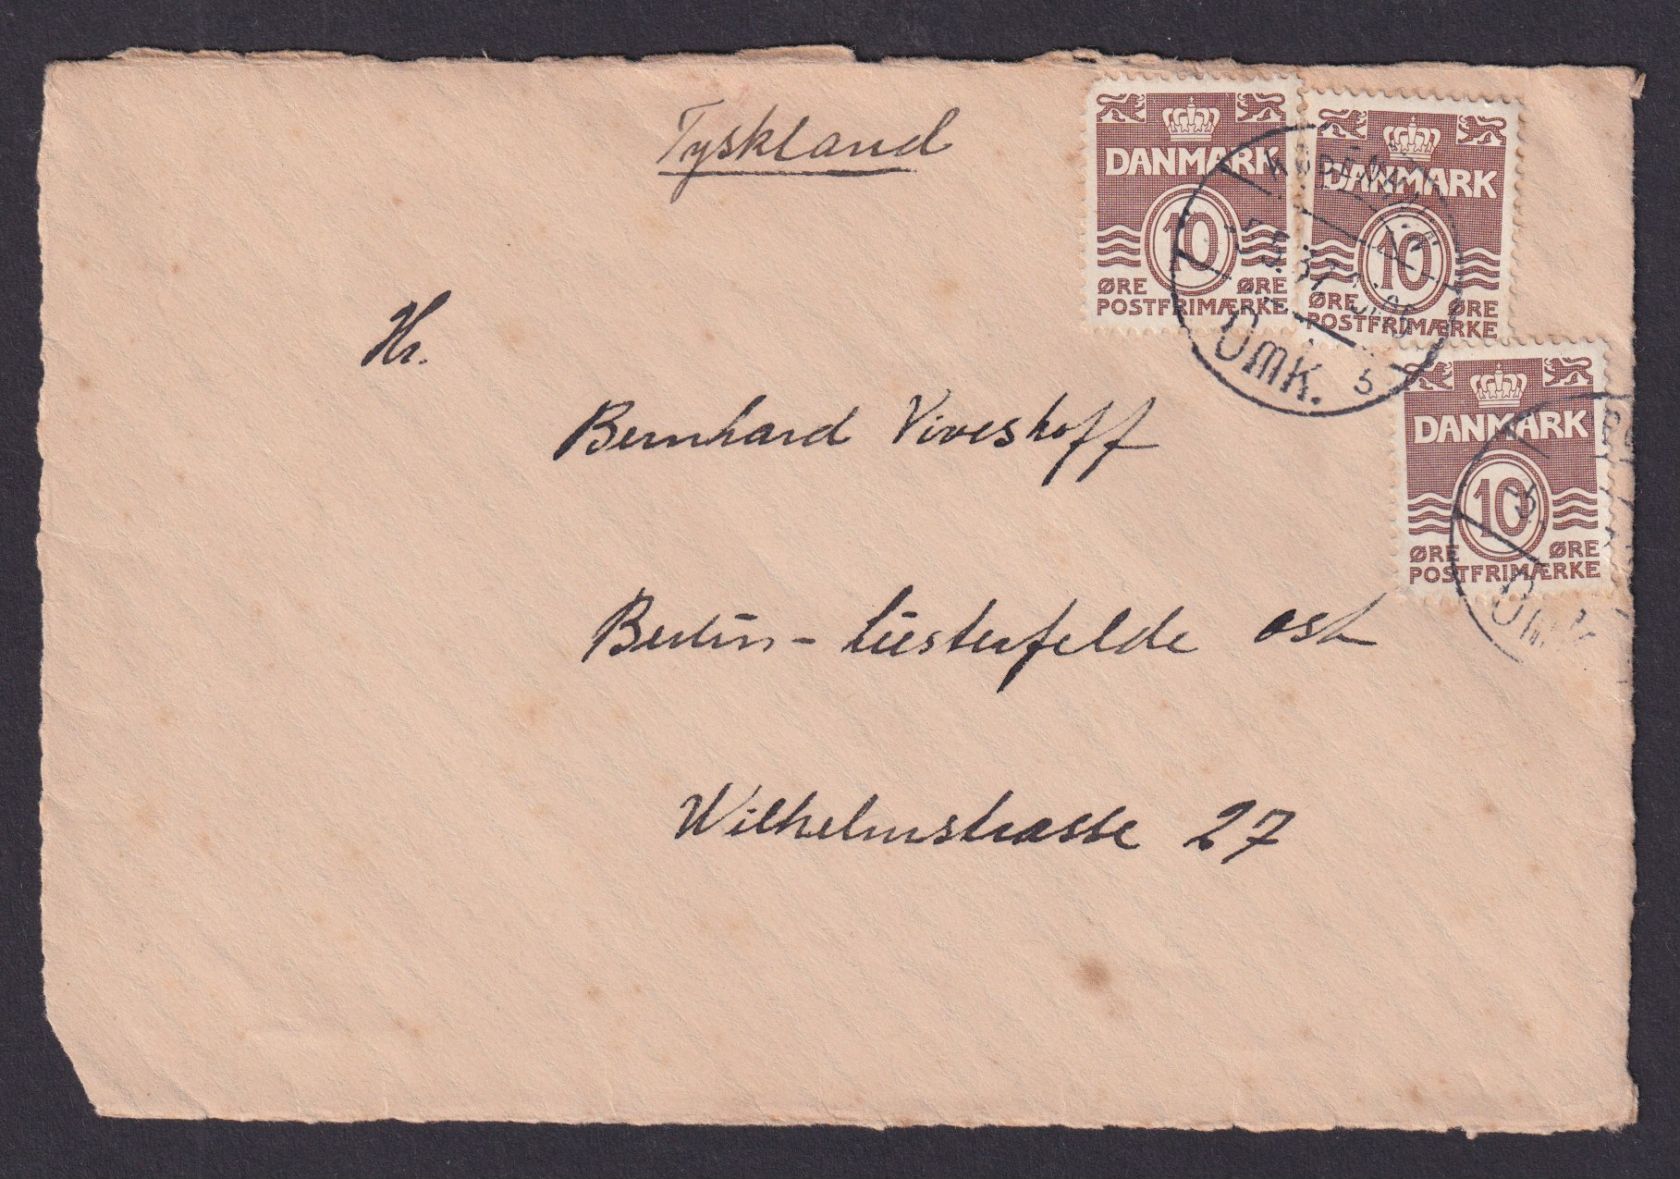 Tyskland
DANMARK
10
ØRE ØRE
POSTFRIMÆRKE
DANMARK
10
ØRE ØRE
POSTFRIMÆRKE
KØBENHAVN
OMK. 5
DANMARK
10
ØRE ØRE
POSTFRIMÆRKE
OMK.
Hr.
Bernhard Viveshoff
Berlin - Lichterfelde ost
Wilhelmstrasse 27